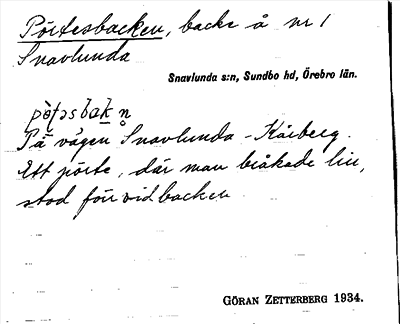 Pörtesbacken, backe å nr 1
Snavlunda
Snavlunda s:n, Sundbo hd, Örebro län.
På vägen Snavlunda - Kårberg.
Ett pörte, där man bråkade lin,
stod förr vid backen
GÖRAN ZETTERBERG 1934.